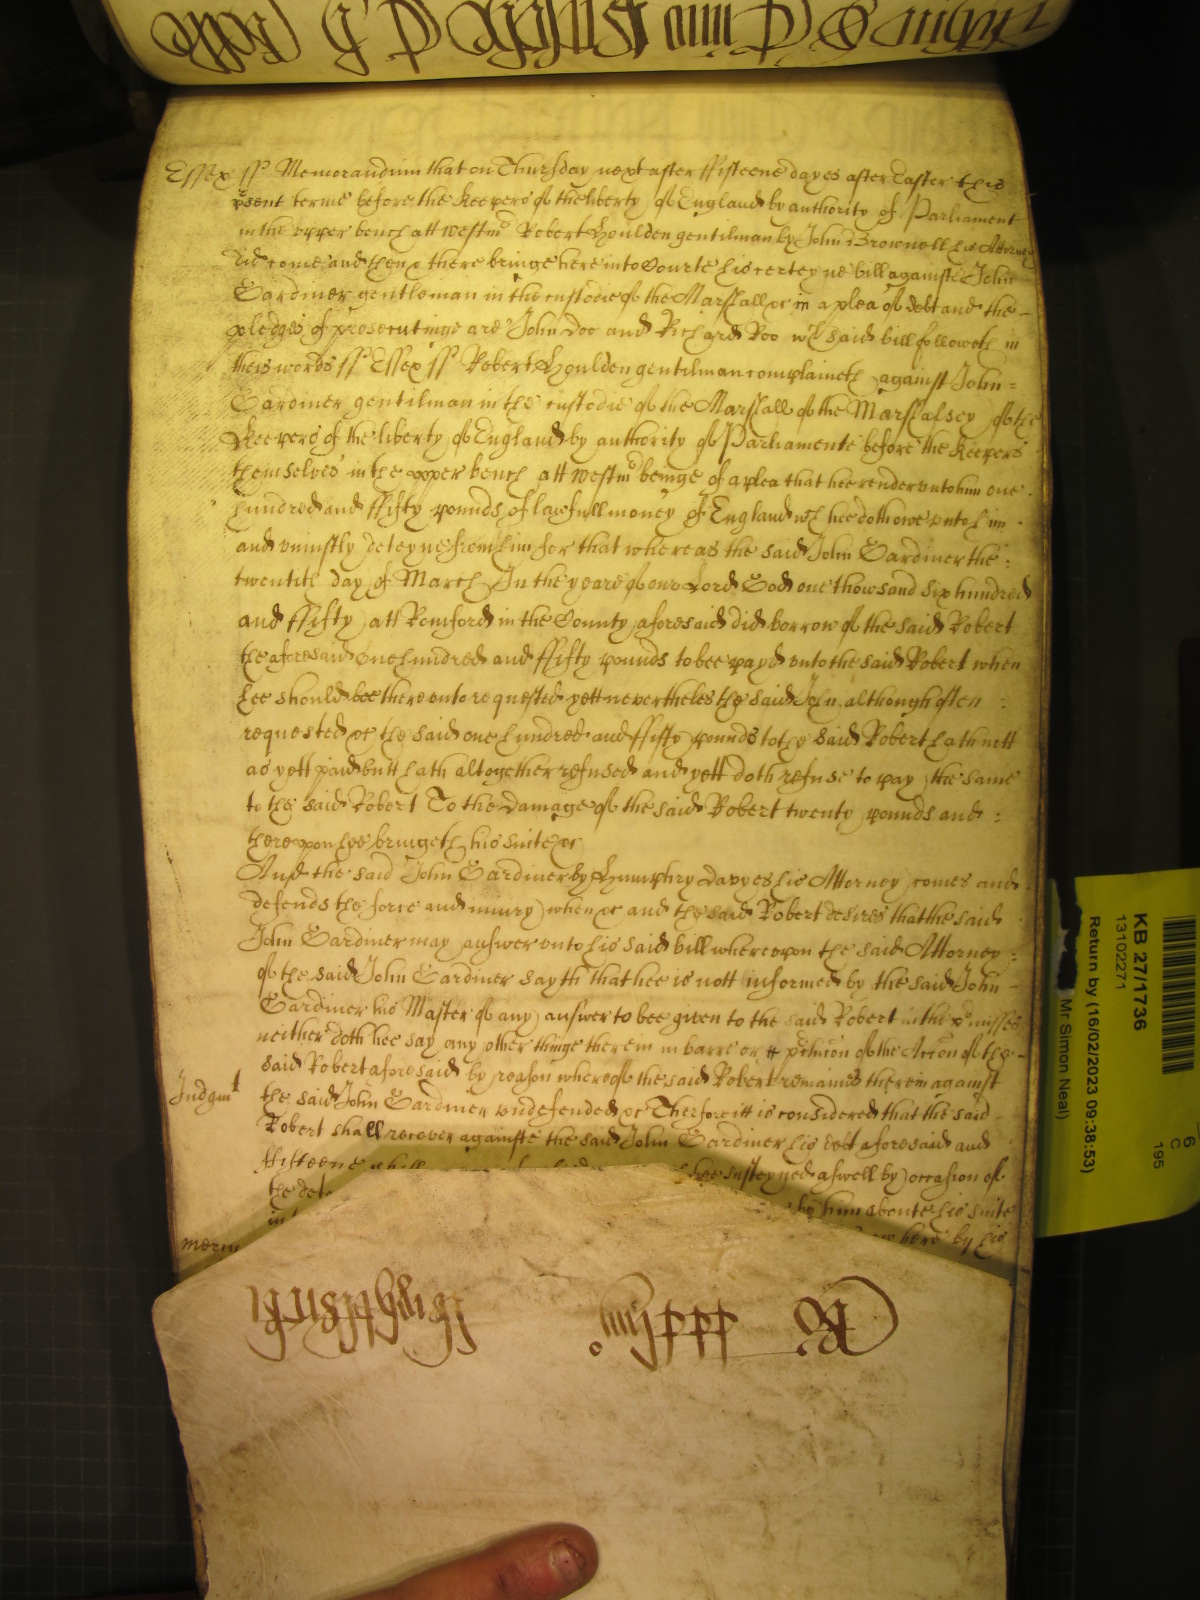 Essex ss Memorandum that on Thursday next after ffifteene dayes after Easter this
p'sent terme before the Keepers of the liberty of England by authority of Parliament
in the vpper bench att Westm' Robert Houlden gentilman by John Brownell his Attorney
did come and then & there bringe here into Courte his certeyne bill againste John
Gardiner gentleman in the custodie of the Marshall &c in a plea of debt and the
pledges of prosecutinge are John Doo and Richard Roo wch said bill followeth in
theis words ss Essex ss Robert Houlden gentilman complaineth against John
Gardiner gentilman in the custodie of the Marshall of the Marshalsey of the
Keepers of the liberty of England by authority of Parliamente before the Keepers
themselves in the vpper bench att Westm' beinge of a plea that hee render vnto him one
hundred and ffifty pounds of lawfull money of England wch hee doth owe vnto him
and vniustly deteyne from him for that whereas the said John Gardiner the
twentith day of March In the yeare of our Lord God one thowsand six hundred
and ffifty att Romford in the County aforesaid did borrow of the said Robert
the aforesaid one hundred and ffifty pounds to bee payd vnto the said Robert when
hee should bee therevnto requested yett nevertheles the said John although often
requested &c the said one hundred and ffifty pounds to the said Robert hath nott
as yett paid butt hath altogether refused and yett doth refuse to pay the same
to the said Robert To the Damage of the said Robert twenty pounds and
therevpon hee bringeth his suite &c
And the said John Gardiner by Humphry Davyes his Attorney comes and
defends the force and iniury when &c and the said Robert desires that the said
John Gardiner may answer vnto his said bill wherevpon the said Attorney
of the said John Gardiner sayth that hee is nott informed by the said John
Gardiner his Master of any answer to bee given to the said Robert in the p'misses
neither doth hee say any other thinge therein in barre or of the Accon of the
said Robert aforesaid by reason whereof the said Robert remaines therein against
Judgmt the said John Gardiner vndefended &c Therfore itt is considered that the said
Robert shall recover againste the said John Gardiner his debt aforesaid and
ffifteene hee susteyned aswell by occasion of
the by him aboute his suite
in here by his
Ro
KB 27/1736
1310271
Return by (16/02/2023 09:38:53)
Mr Simon Neal)
6
C
195